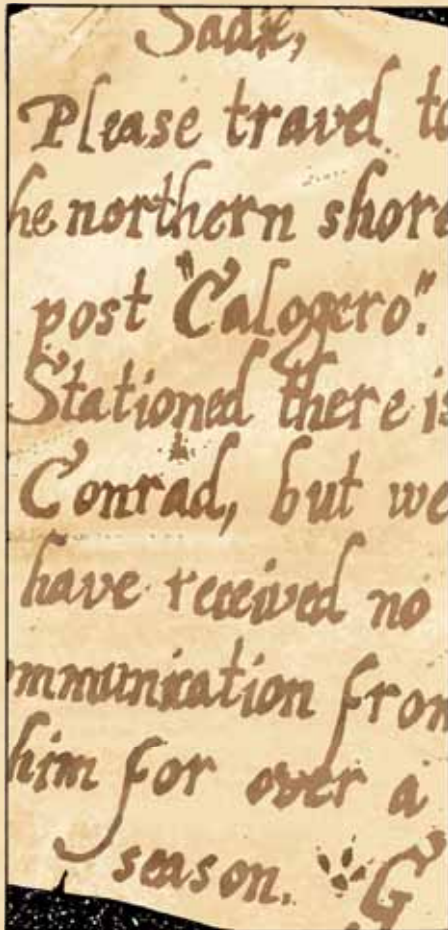 Sadie,
Please travel to
he northern shore
post "Calogero".
Stationed there is
Conrad, but we
have received no
ommunication from
him for over a
season. G